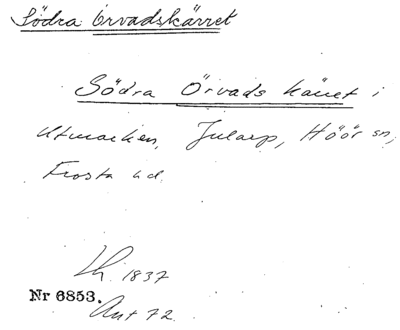 Södra Örvadskärret
Södra Örvads kärret i
Utmarken, Jularp, Höör sn,
Frosta hd.
Lh. 1837
Nr 6853.
Ant 72.